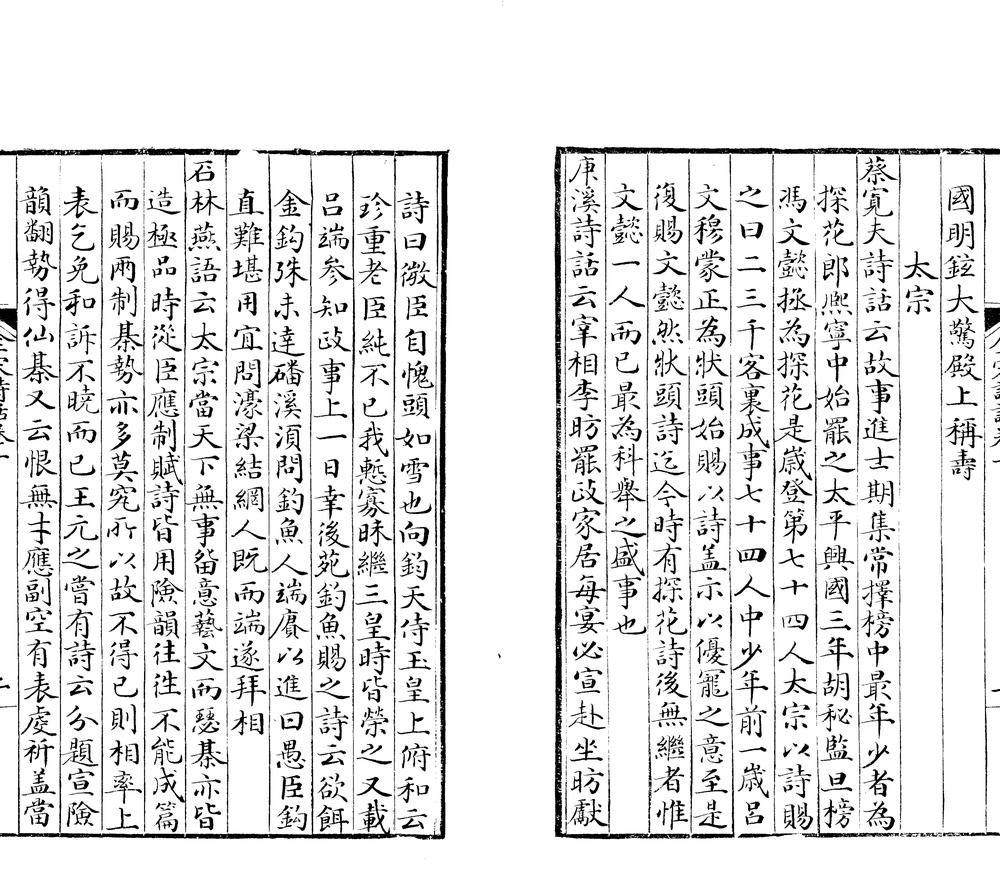 國明鉉大驚殿上稱壽
太宗
蔡寬夫詩話云故事進士期集常擇榜中最年少者為
探花郎熈寧中始罷之太平興國三年胡秘監旦榜
馮文懿拯為探花是嵗登第七十四人太宗以詩賜
之曰二三千客裏成事七十四人中少年前一嵗吕
文穆蒙正為狀頭始賜以詩盖示以優寵之意至是
復賜文懿然狀頭詩迄今時有探花詩後無繼者惟
文懿一人而已最為科舉之盛事也
庚溪詩話云宰相李昉罷政家居每宴必宣赴坐昉獻
詩曰微臣自愧頭如雪也向鈞天侍玉皇上俯和云
珍重老臣純不已我慙寡昧繼三皇時皆榮之又載
吕端參知政事上一日幸後苑釣魚賜之詩云欲餌
金鈎殊未達磻溪湏問釣魚人端賡以進曰愚臣鈎
直難堪用宜問濠梁結網人既而端遂拜相
石林燕語云太宗當天下無事留意藝文而琴棊亦皆
造極品時從臣應制賦詩皆用險韻往往不能成篇
而賜兩制棊勢亦多莫究所以故不得已則相率上
表乞免和訴不曉而已王元之嘗有詩云分題宣險
韻翻勢得仙棊又云恨無才應副空有表虔祈盖當